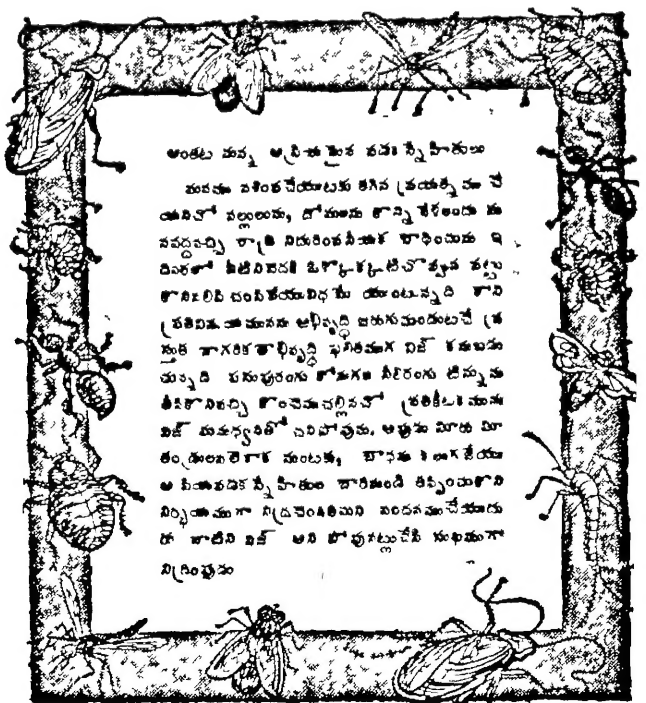 అంతట నున్న అప్రియమైన పడక స్నేహితులు
మనము నశింపచేయుటకు తగిన ప్రయత్నము చే
యనిచో నల్లులును, దోమలును కొన్ని వేళలందు మ
నవద్దవచ్చి రాత్రి నిదురింపనీయక బాధించును ఇ
దివరలో వీటినివెదకి ఒక్కొక్కటిచొప్పున పట్టు
కొని నలిపి చంపివేయువిధమే యుంటున్నది కాని
ప్రతివిషయమునను అభివృద్ధి జరుగుచుండుటచే ప్ర
స్తుత నాగరికతాభివృద్ధి ఫలితముగ ఫ్లిట్ కనుబడు
చున్నది పసుపురంగు కోనుగల నీలిరంగు టిన్నును
తీసికొనివచ్చి కొంచెముచల్లినచో ప్రతికీటకమును
చనిపోవును. అపుడు మీరు మీ
బాధను కలుగజేయు
అ ప్రియపడక స్నేహితుల బారినుండి తప్పించుకొని
నిర్భయముగా నిద్రచెందితిమని వందనముచేయుదు
రు వాటిని ఫ్లిట్ అని పోవునట్లుచేసి సుఖముగా
నిద్రింపుడు